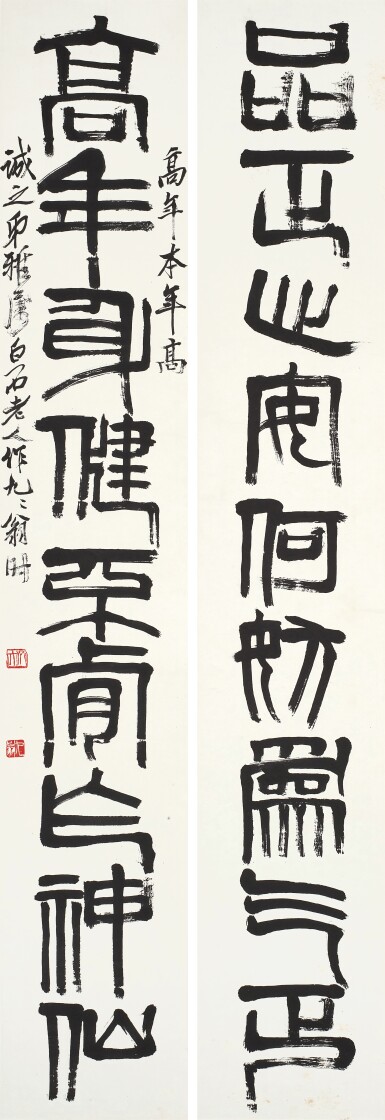 品正心安何妨爲乞丐
高年身健不肯乍神仙
高年本年高
誠之弟雅屬白石老人作九二翁時